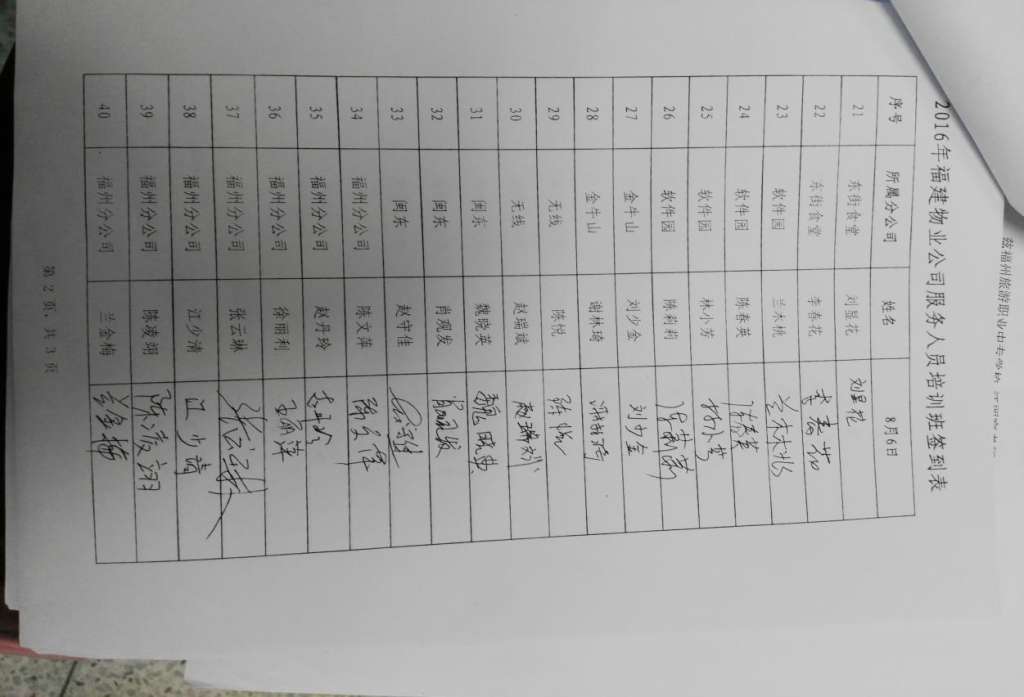 2016年福建物业公司服务人员培训班签到表
序号 所属分公司 姓名 8月6日
21 东街食堂 刘显花 刘显花
22 东街食堂 李春花 李春花
23 软件园 兰木桃 兰木桃
24 软件园 陈春英 陈春英
25 软件园 林小芳 林小芳
26 软件园 陈莉莉 陈莉莉
27 金牛山 刘少金 刘少金
28 金牛山 谢林琦
29 无线 陈悦 陈悦
30 无线 赵瑞斌 赵瑞斌
31 闽东 魏晓英 魏晓英
32 闽东 肖观发 肖观发
33 闽东 赵守佳
34 福州分公司 陈文萍 陈文萍
35 福州分公司 赵丹玲
36 福州分公司 徐丽利
37 福州分公司 张云琳 张云琳
38 福州分公司 江少清 江少清
39 福州分公司 陈凌翊 陈凌翊
40 福州分公司 兰金梅 兰金梅
第 2 页，共 3 页
兹福州旅游职业中专学校